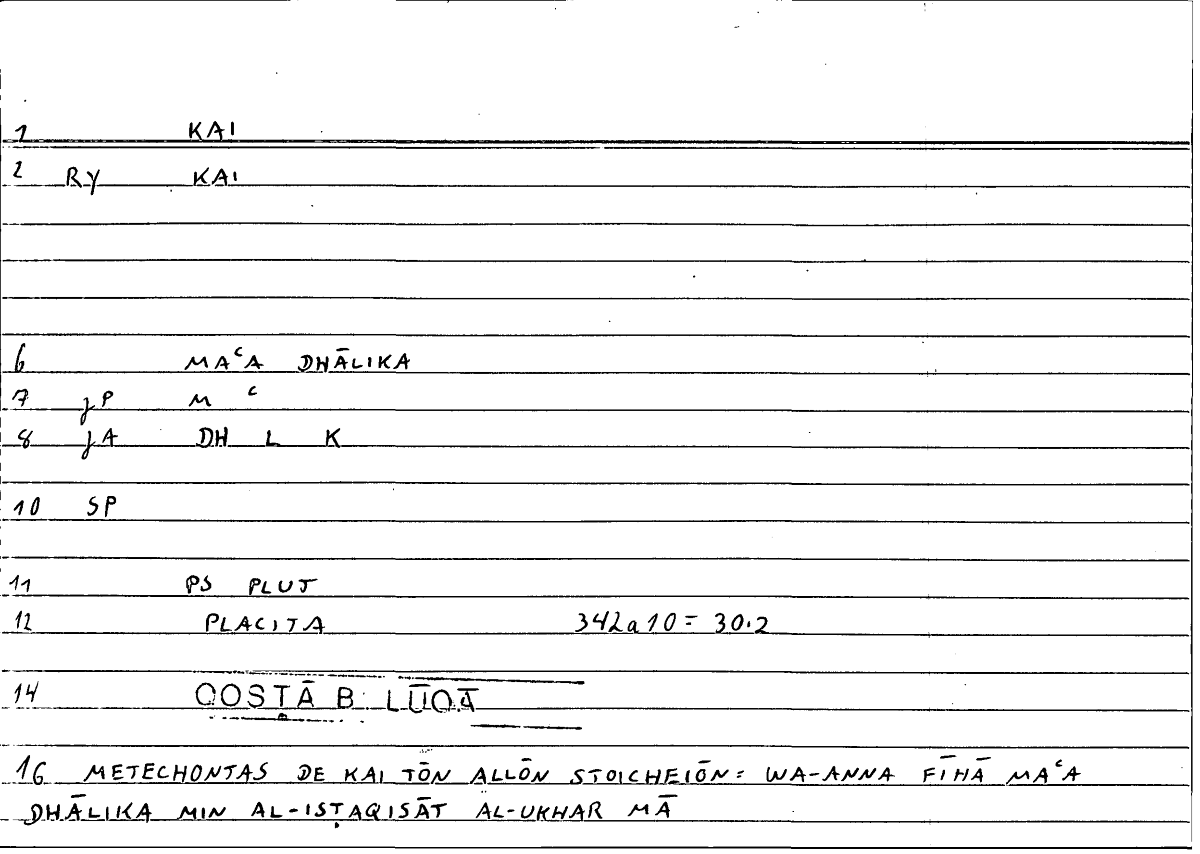 1 KAI
2 RY KAI
6 MAᶜA DHĀLIKA
7 JP M ᶜ
8 JA DH L K
10 SP
11 PS PLUT
12 PLACITA 342a10 = 30.2
14 QOSṬĀ B. LŪQĀ
16 METECHONTAS DE KAI TŌN ALLŌN STOICHEIŌN: WA-ANNA FĪHĀ MAᶜA
DHĀLIKA MIN AL-ISṬAQISĀT AL-UKHAR MĀ